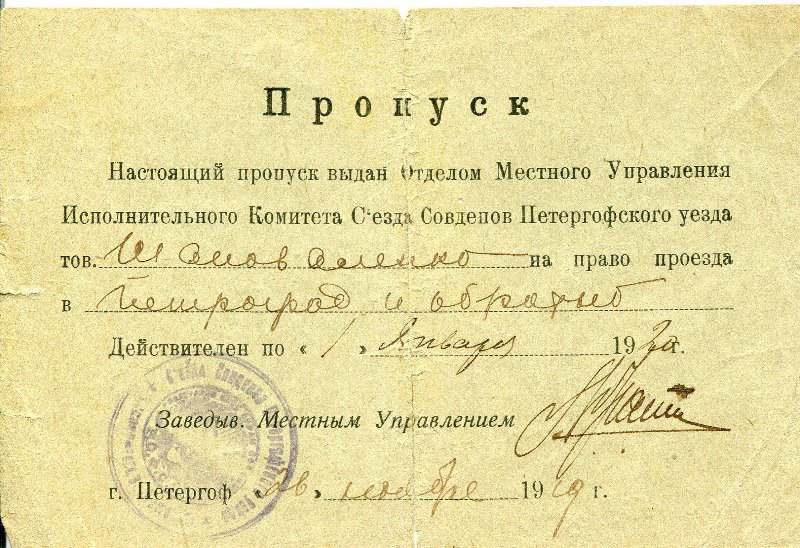 Пропуск
Настоящий пропуск выдан Отделом Местного Управления
Исполнительного Комитета С'езда Совдепов Петергофского уезда
тов. Шаповаленко на право проезда
в Петроград и обратно
Действителен по « 1 » Января 1920 г.
Заведыв. Местным Управлением
г. Петергоф «26» ноября 1919 г.